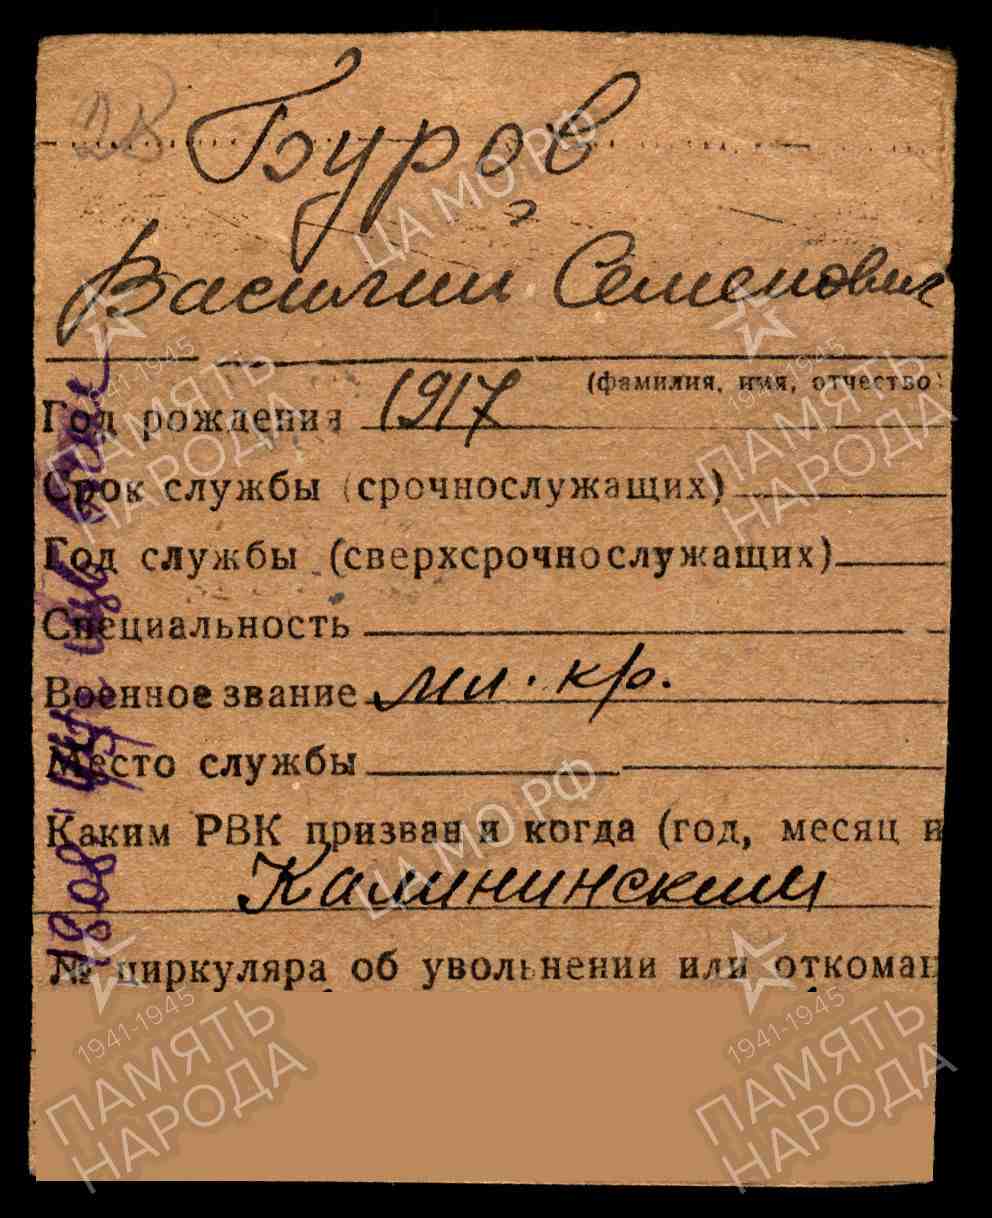 Буров
Василий Семенович
(фамилия, имя, отчество)
Год рождения 1917
Срок службы (срочнослужащих)
Год службы (сверхсрочнослужащих)
Специальность
Военное звание мл. кр.
Место службы
Каким РВК призван и когда (год, месяц и
Калининским
№ циркуляра об увольнении или откоман
ЦА МО РФ
1941-1945
ПАМЯТЬ
НАРОДА
1941-1945
ПАМЯТЬ
НАРОДА
ЦА МО РФ
1941-1945
ПАМЯТЬ
НАРОДА
1941-1945
ПАМЯТЬ
НАРОДА